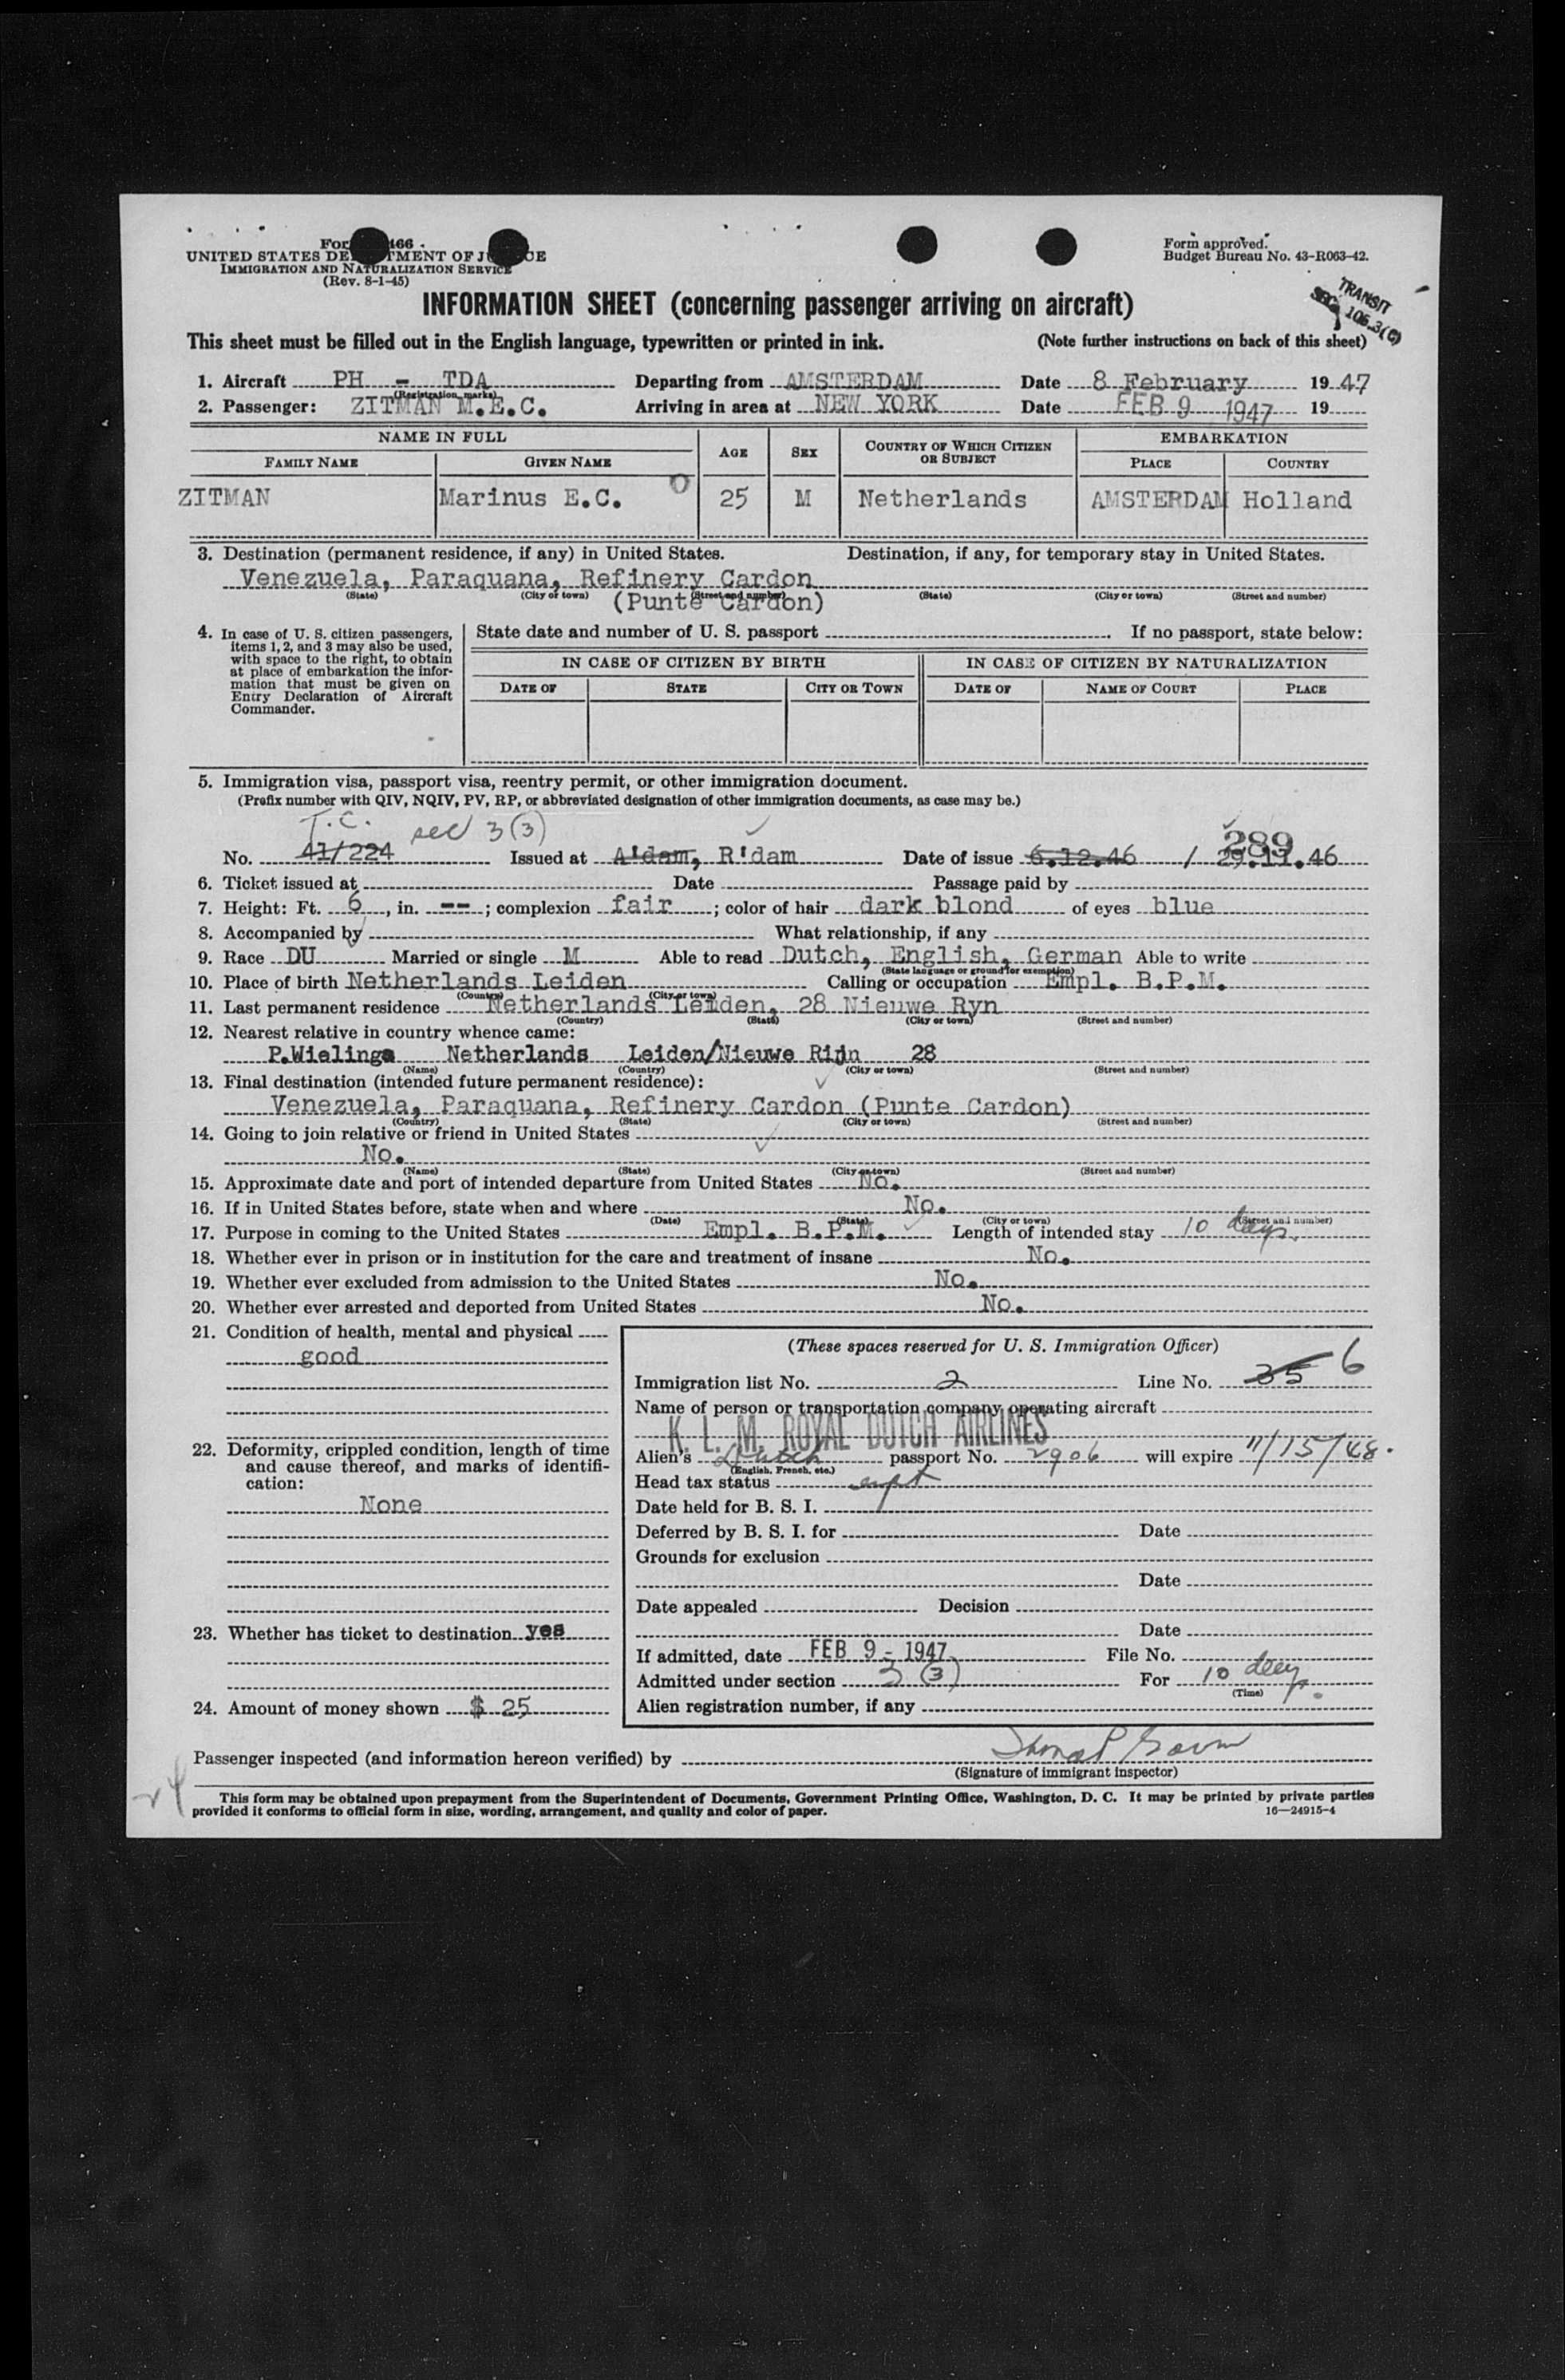 For 466
UNITED STATES DE TMENT OF J CE
IMMIGRATION AND NATURALIZATION SERVICE
(Rev. 8-1-45)
Form approved.
Budget Bureau No. 43-R063-42.
TRANSIT
SEC. 106.3(C)
INFORMATION SHEET (concerning passenger arriving on aircraft)
This sheet must be filled out in the English language, typewritten or printed in ink. (Note further instructions on back of this sheet)
1. Aircraft PH - TDA Departing from AMSTERDAM Date 8 February 1947
(Registration marks)
2. Passenger: ZITMAN M.E.C. Arriving in area at NEW YORK Date FEB 9 1947 19
NAME IN FULL AGE SEX COUNTRY OF WHICH CITIZEN OR SUBJECT EMBARKATION
FAMILY NAME GIVEN NAME PLACE COUNTRY
ZITMAN Marinus E.C. 0 25 M Netherlands AMSTERDAM Holland
3. Destination (permanent residence, if any) in United States. Destination, if any, for temporary stay in United States.
Venezuela, Paraquana, Refinery Cardon
(State) (City or town) (Street and number) (State) (City or town) (Street and number)
(Punte Cardon)
4. In case of U. S. citizen passengers, items 1, 2, and 3 may also be used, with space to the right, to obtain at place of embarkation the information that must be given on Entry Declaration of Aircraft Commander.
State date and number of U. S. passport If no passport, state below:
IN CASE OF CITIZEN BY BIRTH IN CASE OF CITIZEN BY NATURALIZATION
DATE OF STATE CITY OR TOWN DATE OF NAME OF COURT PLACE
5. Immigration visa, passport visa, reentry permit, or other immigration document.
(Prefix number with QIV, NQIV, PV, RP, or abbreviated designation of other immigration documents, as case may be.)
T.C. sec 3(3)
289
No. 41/224 Issued at A'dam, R'dam Date of issue 6.12.46 / 29.11.46
6. Ticket issued at Date Passage paid by
7. Height: Ft. 6, in. --; complexion fair; color of hair dark blond of eyes blue
8. Accompanied by What relationship, if any
9. Race DU Married or single M Able to read Dutch, English, German Able to write
(State language or ground for exemption)
10. Place of birth Netherlands Leiden Calling or occupation Empl. B.P.M.
(Country) (City or town)
11. Last permanent residence Netherlands Leiden, 28 Nieuwe Ryn
(Country) (State) (City or town) (Street and number)
12. Nearest relative in country whence came:
P.Wielinga Netherlands Leiden/Nieuwe Rijn 28
(Name) (Country) (City or town) (Street and number)
13. Final destination (intended future permanent residence):
Venezuela, Paraquana, Refinery Cardon (Punte Cardon)
(Country) (State) (City or town) (Street and number)
14. Going to join relative or friend in United States
No.
(Name) (State) (City or town) (Street and number)
15. Approximate date and port of intended departure from United States No.
16. If in United States before, state when and where No.
(Date) (State) (City or town) (Street and number)
17. Purpose in coming to the United States Empl. B.P.M. Length of intended stay 10 days.
18. Whether ever in prison or in institution for the care and treatment of insane No.
19. Whether ever excluded from admission to the United States No.
20. Whether ever arrested and deported from United States No.
21. Condition of health, mental and physical
good
22. Deformity, crippled condition, length of time and cause thereof, and marks of identification:
None
23. Whether has ticket to destination yes
24. Amount of money shown $ 25
(These spaces reserved for U. S. Immigration Officer)
Immigration list No. 2 Line No. 35 6
Name of person or transportation company operating aircraft
K. L. M. ROYAL DUTCH AIRLINES
Alien's Dutch passport No. 2906 will expire 11/15/48.
(English, French, etc.)
Head tax status
Date held for B. S. I.
Deferred by B. S. I. for Date
Grounds for exclusion
Date
Date appealed Decision
Date
If admitted, date FEB 9 - 1947 File No.
Admitted under section 3 (3) For 10 days.
(Time)
Alien registration number, if any
Passenger inspected (and information hereon verified) by
(Signature of immigrant inspector)
This form may be obtained upon prepayment from the Superintendent of Documents, Government Printing Office, Washington, D. C. It may be printed by private parties
provided it conforms to official form in size, wording, arrangement, and quality and color of paper.
16—24915-4